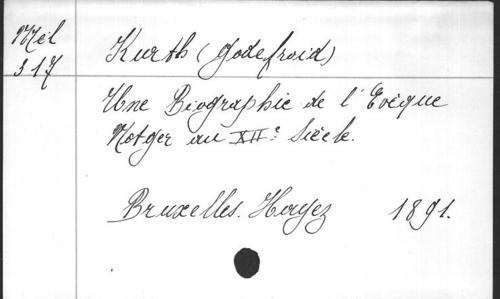 Mél
317
Kurth (Godefroid)
Une Biographie de l'Evèque
Notger au XIIe Siècle.
Bruxelles. Hayez 1891.